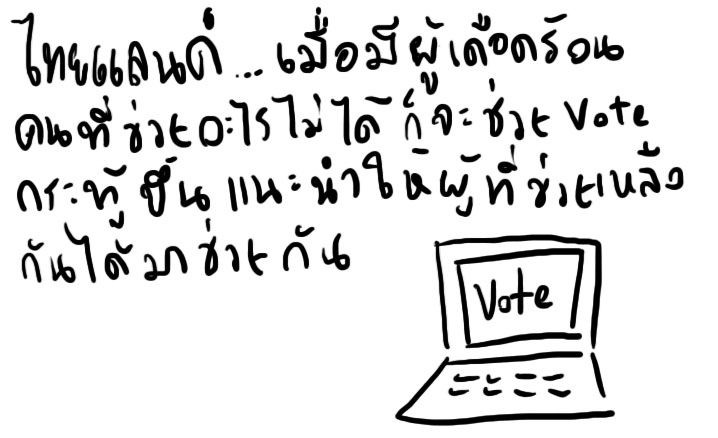 ไทยแลนด์...เมื่อมีผู้เดือดร้อน
คนที่ช่วยอะไรไม่ได้ก็จะช่วย Vote
กระทู้ขึ้น แนะนำให้ผู้ที่ช่วยเหลือ
กันได้มาช่วยกัน
Vote